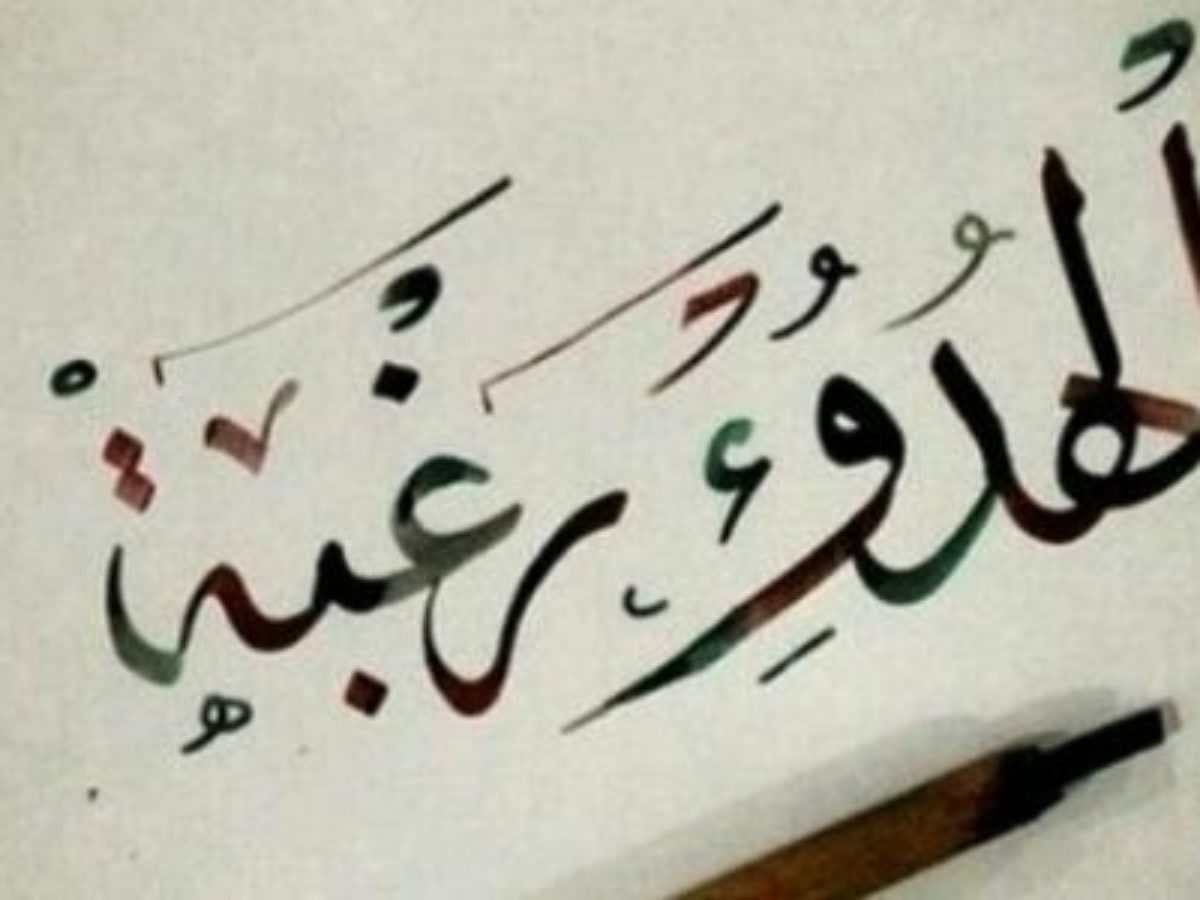 الهُدُوءِ رغْبَة